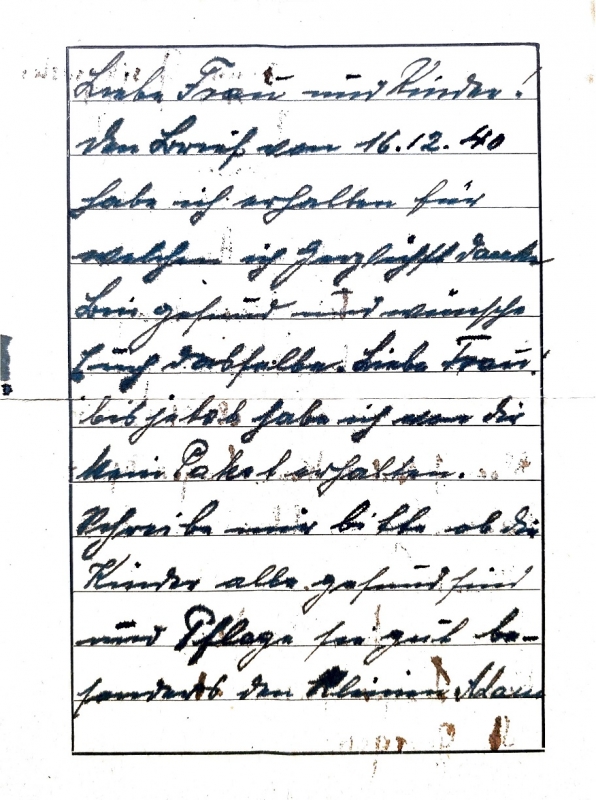 Liebe Frau und Kinder!
Den Brief von 16.12.40
habe ich erhalten für
welchen ich herzlichst danke
Bin gesund und wünsche
Euch dasselbe. Liebe Frau!
bis jetzt habe ich von dir
kein Paket erhalten.
Schreibe mir bitte ob die
Kinder alle gesund sind
und Pflege sie gut be-
sonders den kleinen Adam